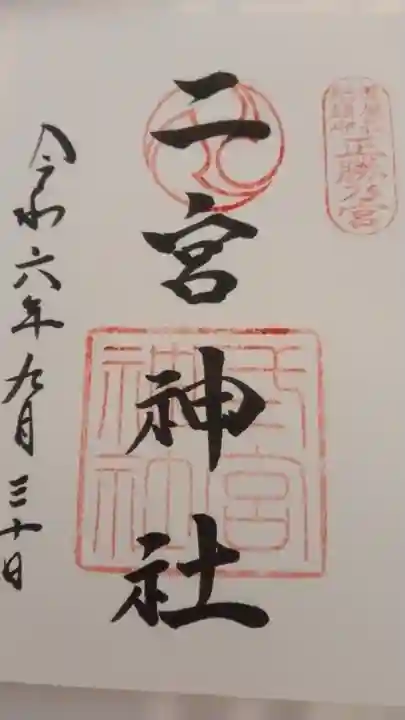 正勝乃宮
二宮神社
令和六年九月三十日
二宮
神社